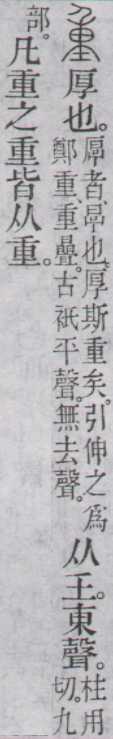 重厚也。厚者㫗也。厚斯重矣。引伸之爲鄭重、重疊。古祇平聲。無去聲。从𡈼。東聲。柱用切。九
部。凡重之重皆从重。